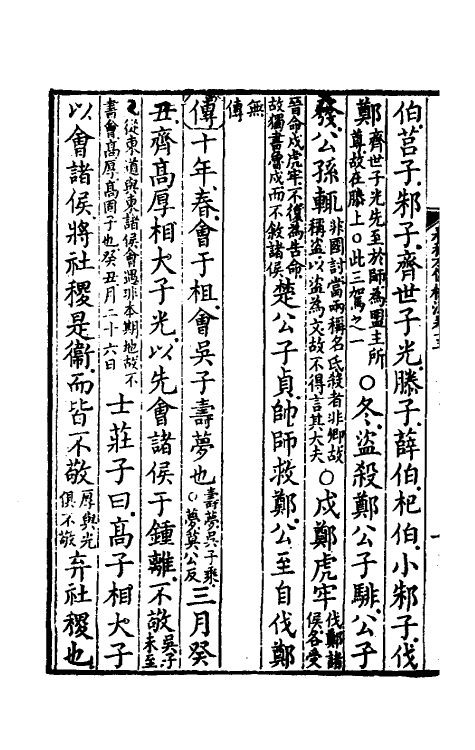 伯莒子邾子齊世子光滕子薛伯杞伯小邾子伐
鄭齊世子光先至於師為盟主所尊故在滕上○此三駕之一○冬盜殺鄭公子騑公子
發公孫輒非國討當兩稱名氏殺者非卿故稱盜以盜為文故不得言其大夫○戍鄭虎牢伐鄭諸侯各受
晉命戍虎牢不復為告命故獨書魯戍而不敘諸侯楚公子貞帥師救鄭公至自伐鄭
無傳
傳十年春會于柤會吳子壽夢也壽夢吳子乘○夢莫公反三月癸
丑齊高厚相大子光以先會諸侯于鍾離不敬吳子未至
從東道與東諸侯會遇非本期地故不書會高厚高固子也癸丑月二十六日士莊子曰高子相大子
以會諸侯將社稷是衞而皆不敬厚與光俱不敬弃社稷也